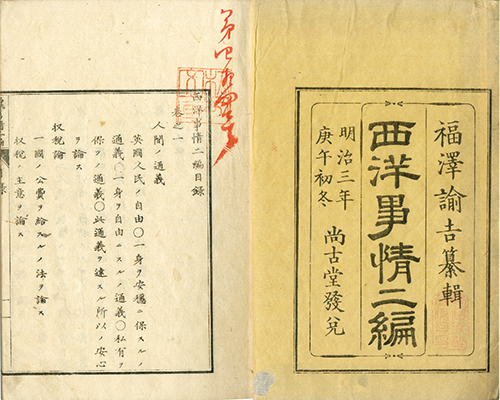 福澤諭吉纂輯
西洋事情二編
明治三年
庚午初冬
尚古堂發兌
西洋事情二編目録
巻之一
人間ノ通義
英國人民ノ自由〇一身ヲ安穏ニ保スルノ
通義〇一身ヲ自由ニスルノ通義〇私有ヲ
保ツノ通義〇此通義ヲ達スル所以ノ安心
ヲ論ス
収税論
一國ノ公費ヲ給スルノ法ヲ論ス
収税ノ主意ヲ論ス